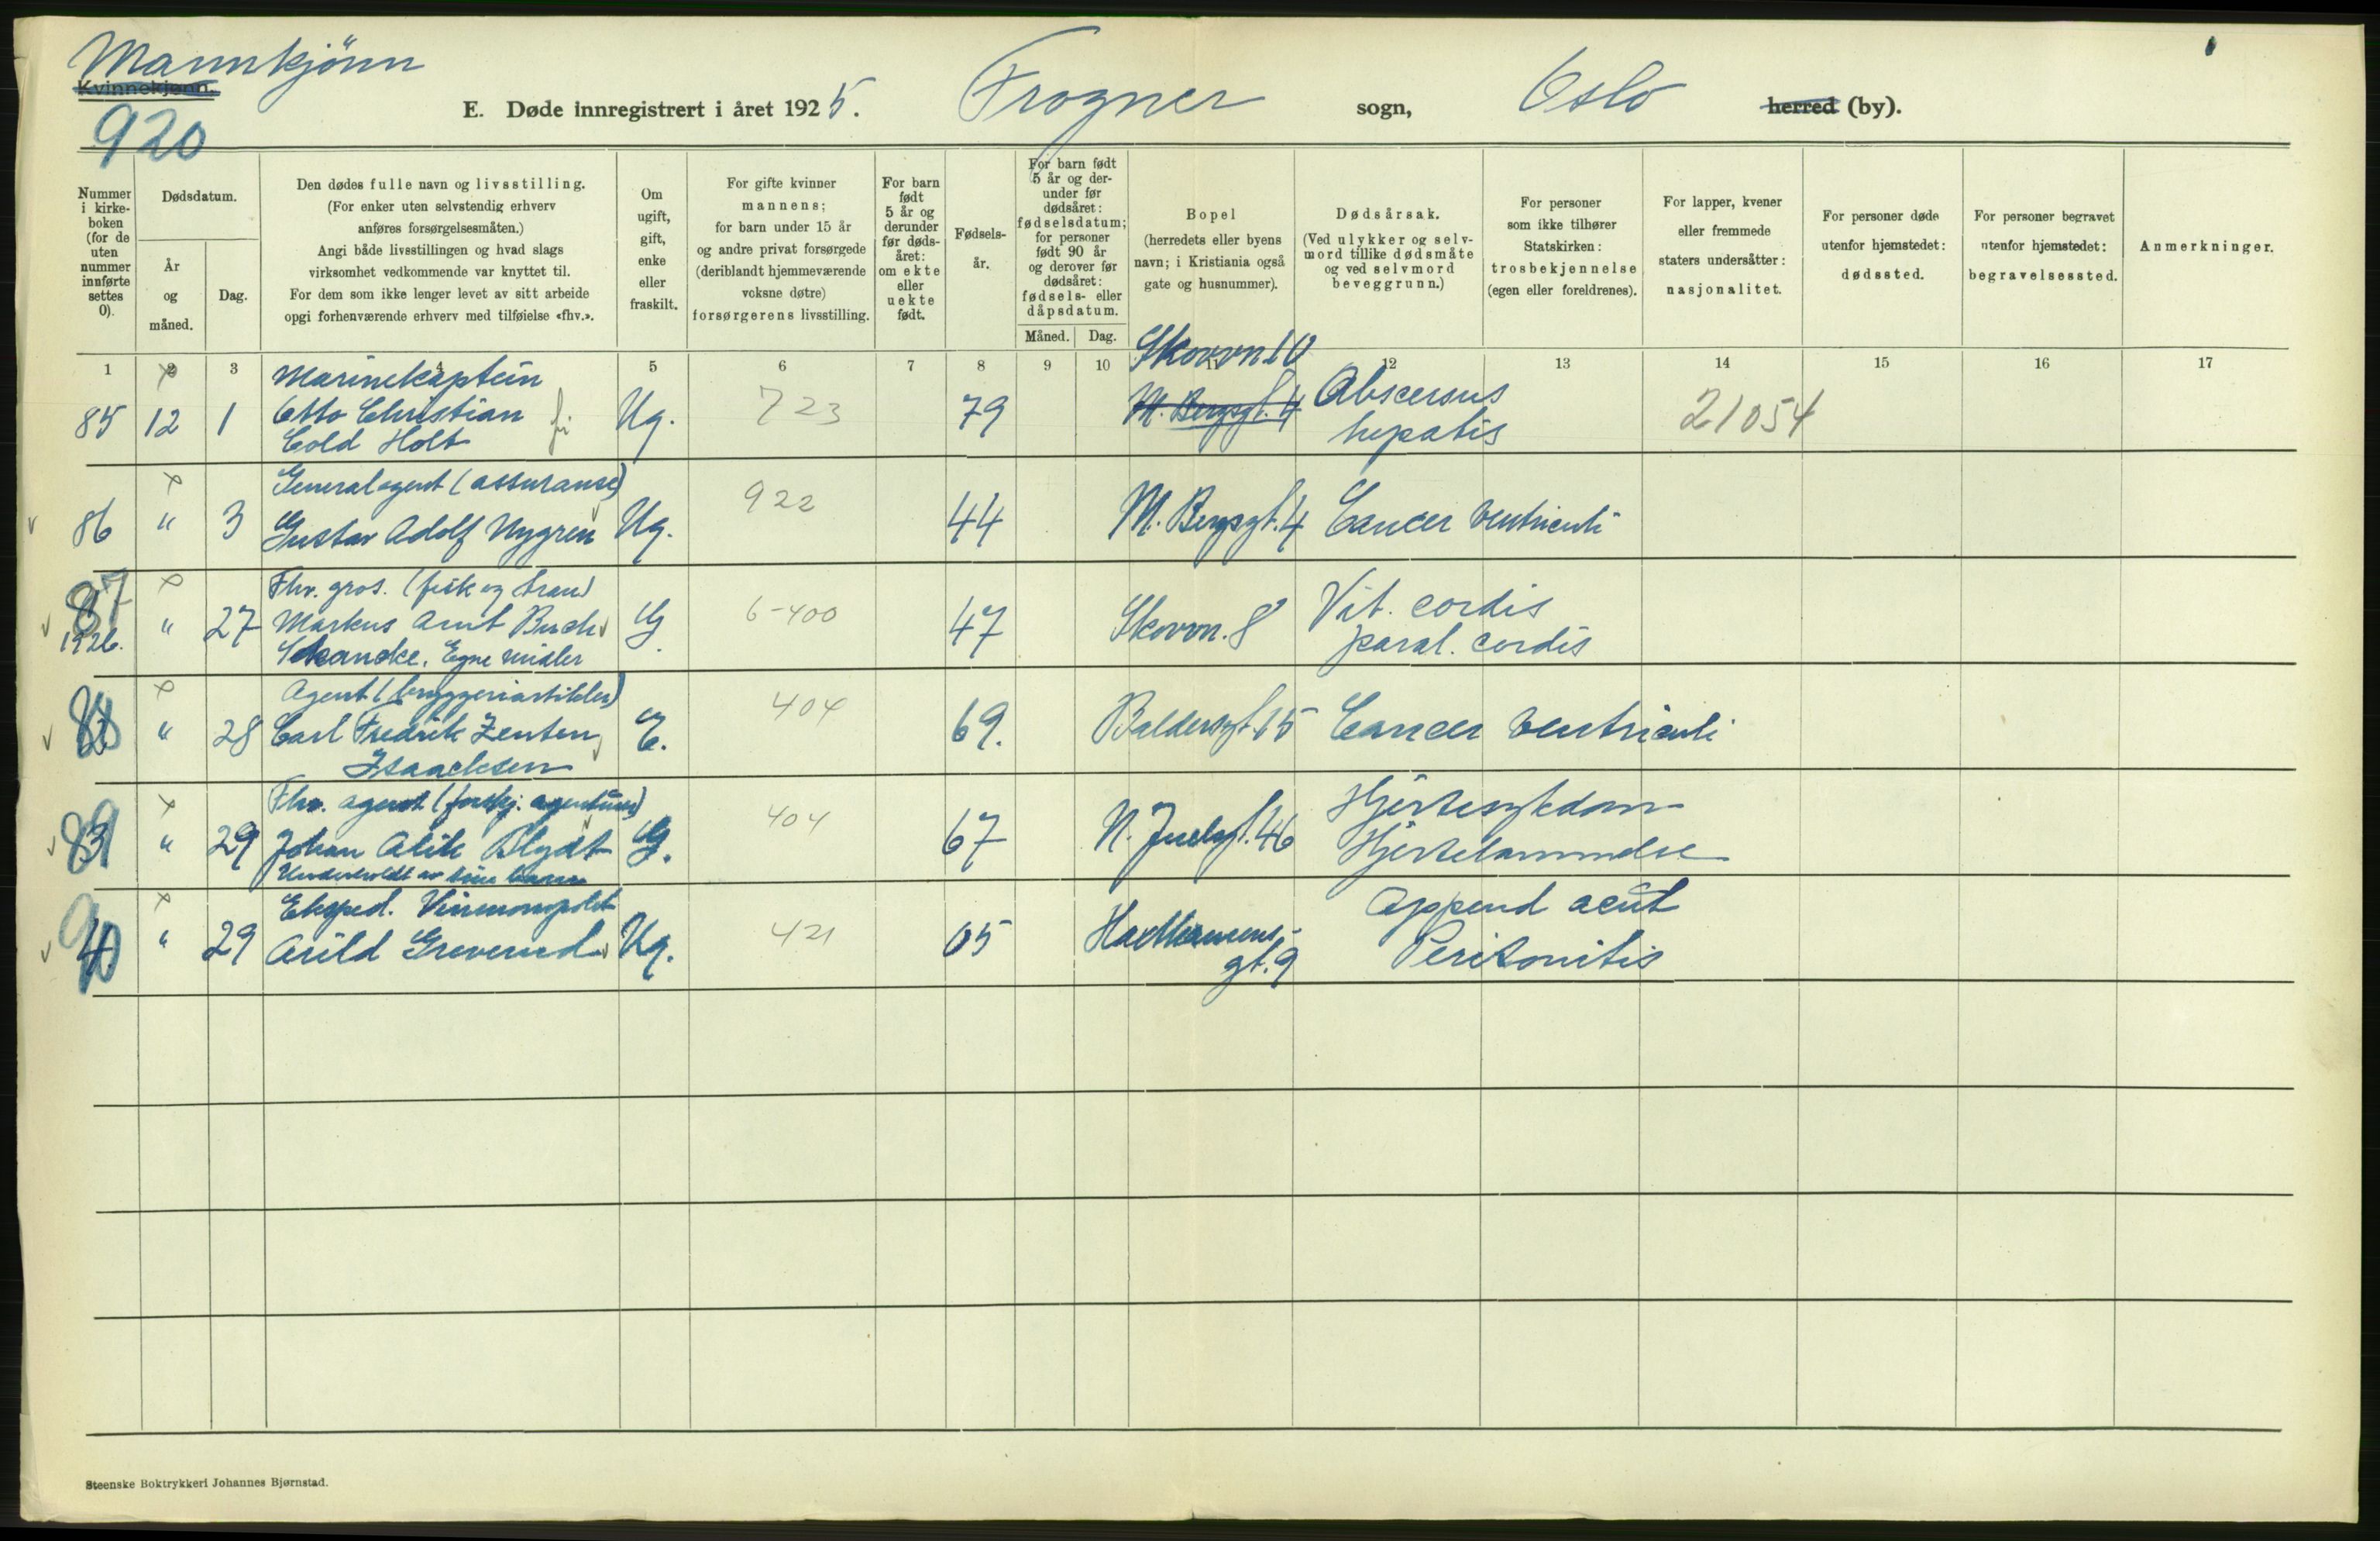 Mannkjönn
Kvinnekjønn.
920
E. Døde innregistrert i året 1925. Frogner sogn, Oslo herred (by).
Nummer i kirkeboken (for de uten nummer innførte settes 0).
Dødsdatum.
År og måned.
Dag.
Den dødes fulle navn og livsstilling.
(For enker uten selvstendig erhverv
anføres forsørgelsesmåten.)
Angi både livsstillingen og hvad slags
virksomhet vedkommende var knyttet til.
For dem som ikke lenger levet av sitt arbeide
opgi forhenværende erhverv med tilføielse «fhv.».
Om
ugift,
gift,
enke
eller
fraskilt.
For gifte kvinner
mannens;
for barn under 15 år
og andre privat forsørgede
(deriblandt hjemmeværende
voksne døtre)
forsørgerens livsstilling.
For barn
født
5 år og
derunder
før døds-
året:
om ekte
eller
uekte
født.
Fødsels-
år.
For barn født
5 år og der-
under før
dødsåret:
fødselsdatum;
for personer
født 90 år
og derover før
dødsåret:
fødsels- eller
dåpsdatum.
Måned.
Dag.
Bopel
(herredets eller byens
navn; i Kristiania også
gate og husnummer).
Dødsårsak.
(Ved ulykker og selv-
mord tillike dødsmåte
og ved selvmord
beveggrunn.)
For personer
som ikke tilhører
Statskirken:
trosbekjennelse
(egen eller foreldrenes).
For lapper, kvener
eller fremmede
staters undersåtter:
nasjonalitet.
For personer døde
utenfor hjemstedet:
dødssted.
For personer begravet
utenfor hjemstedet:
begravelsessted.
Anmerkninger.
1 2 3 4 5 6 7 8 9 10 11 12 13 14 15 16 17
Marinekaptein Skovvn. 10
85 12 1 Otto Christian Ug. 723 79 M. Bergsgt. 4 Abscersus 21054
Cold Holt hepatis
Generalagent (assuranse)
86 " 3 Gustav Adolf Nygren Ug. 922 44 M. Bergsgt. 4 Cancer ventriculi
Fhv. gros. (fisk og tran)
87 " 27 Markus Arnt Buch G. 6-400 47 Skovvn. 8 Vit. cordis
1926. Schancke. Egne midler paral. cordis
Agent (bryggeriartikler)
88 " 28 Carl Fredrik Zenten E. 404 69. Baldersgt. 15 Cancer ventriculi
Isaachsen
Fhv. agent (forskj. agenturer)
89 " 29 Johan Blydt G. 404 67 N. Juelsgt. 46 Hjertesykdom
Underholdt av sine barn Hjertelammelse
Eksped. Vinmonopolet
90 " 29 Arild Greverud Ug. 421 05 gt. 9 Append acut
Peritonitis
Steenske Boktrykkeri Johannes Bjørnstad.